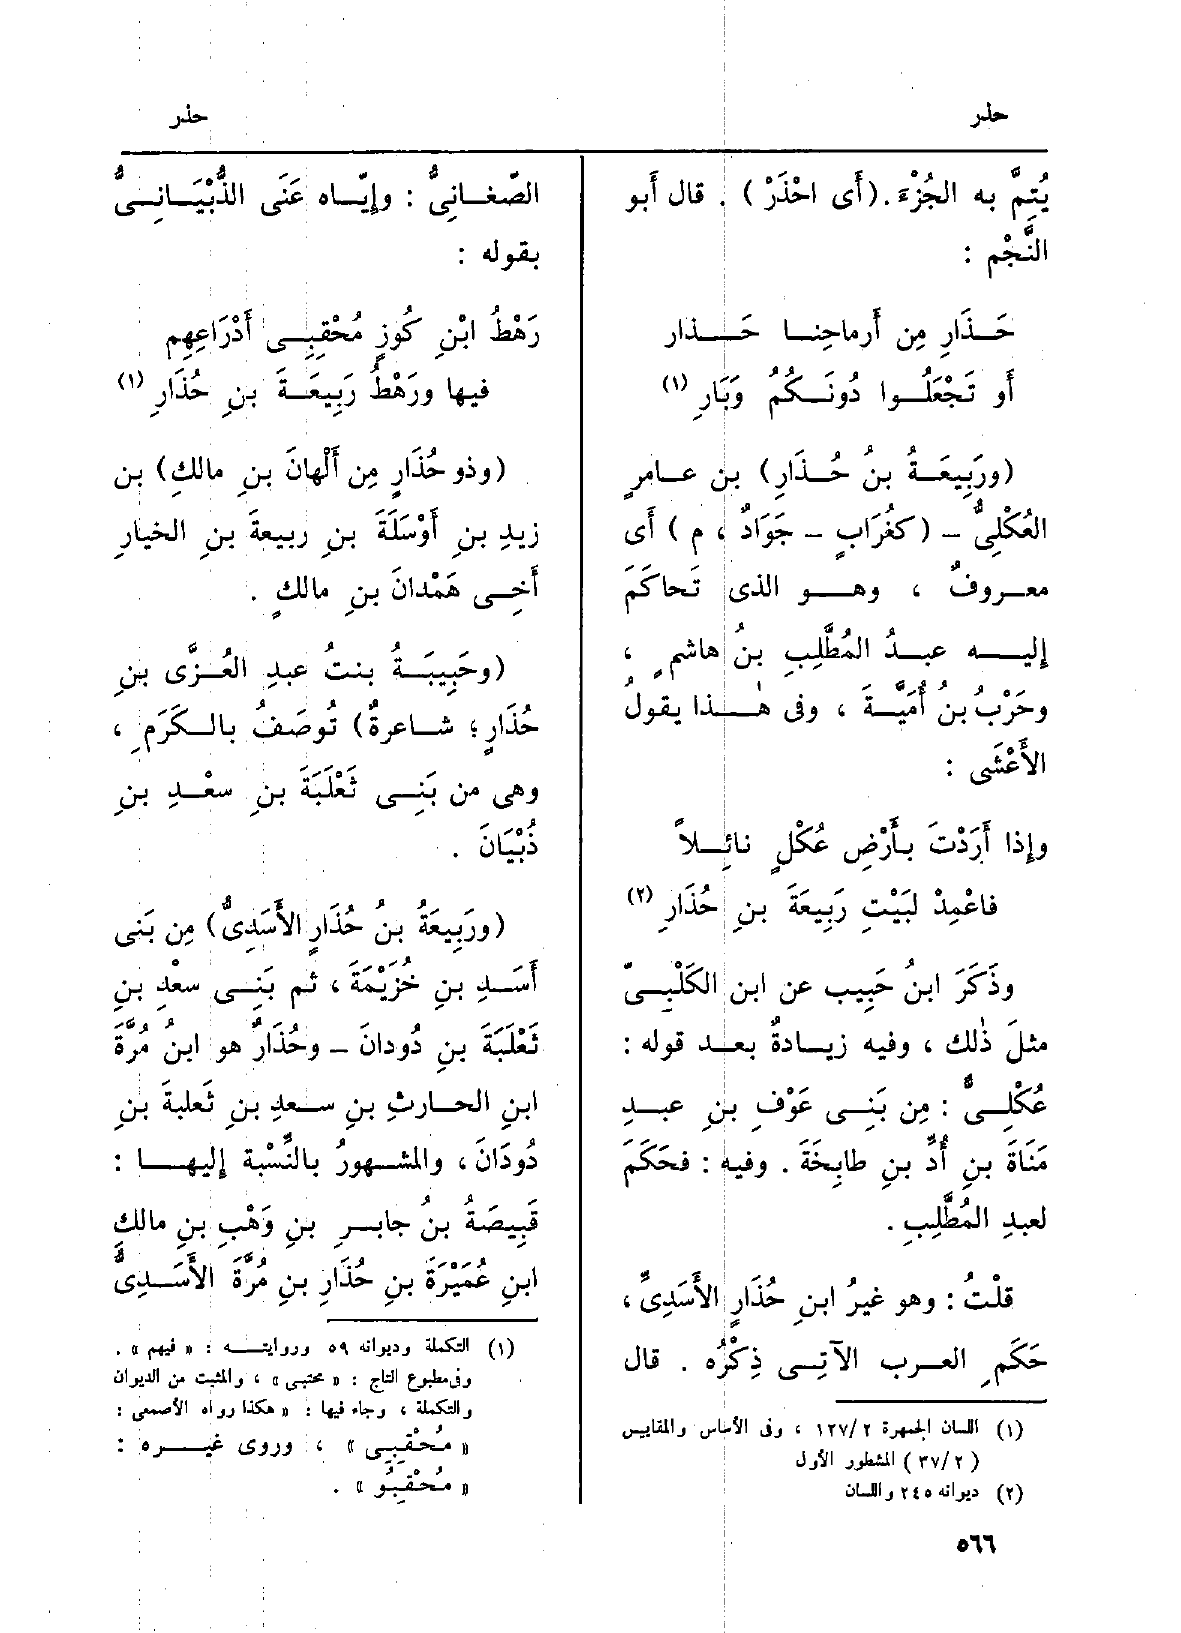 حذر
حذر
يُتِمُّ به الجُزْءَ. (أَى احْذَرْ) . قال أَبو
النَّجْم :
حَـذَارِ مِن أَرماحِنـا حَـذار
أَو تَجْعَلُـوا دُونَـكُمُ وَبَارِ (١)
(ورَبِيعَـةُ بنُ حُـذَارِ) بنِ عـامرٍ
العُكْلِىُّ – (كغُرَابٍ – جَوَادٌ ، م) أَى
معـروفٌ ، وهـو الذى تَحاكَمَ
إِليـه عبـدُ المُطَّلِبِ بنُ هاشمٍ ،
وحَرْبُ بنُ أُمَيَّـةَ ، وفى هٰـذا يقولُ
الأَعْشَى :
وإِذا أَرَدْتَ بأَرْضِ عُكْلٍ نائِـلاً
فاعْمِدْ لبَيْتِ رَبِيعَةَ بنِ حُذَارِ (٢)
وذَكَرَ ابنُ حَبِيب عن ابن الكَلْبِـىّ
مثلَ ذٰلك ، وفيه زيـادةٌ بعـد قوله :
عُكْلِـىٌّ : مِن بَنِـى عَوْفِ بنِ عبـدِ
مَنَاةَ بنِ أُدِّ بنِ طابِخَةَ . وفيه : فحَكَمَ
لعبدِ المُطَّلِبِ .
قلْتُ : وهو غيرُ ابنِ حُذَارٍ الأَسَدِىِّ ،
حَكَمِ العـربِ الآتِـى ذِكْرُه . قال
(١) اللسان الجمهرة ١٢٧/٢ ، وفى الأساس والمقاييس
(٣٧/٢) المشطور الأول
(٢) ديوانه ٢٤٥ واللسان
الصّغـانِىُّ : وإِيّـاه عَنَى الذُّبْيَـانِـىُّ
بقوله :
رَهْطُ ابْنِ كُوزٍ مُحْقِبِـى أَدْرَاعِهِم
فيها ورَهْطُ رَبِيعَـةَ بنِ حُذَارِ (١)
(وذو حُذَارٍ مِن أَلْهانَ بنِ مالكِ) بن
زيدِ بنِ أَوْسَلَةَ بنِ ربيعةَ بنِ الخيارِ
أَخِـى هَمْدانَ بنِ مالكٍ .
(وحَبِيبَـةُ بنتُ عبدِ العُـزَّى بنِ
حُذَارٍ ؛ شـاعرةٌ) تُوصَفُ بالـكَرَمِ ،
وهى من بَنِـى ثَعْلَبَةَ بنِ سعْـدِ بنِ
ذُبْيَانَ .
(ورَبِيعَةُ بنُ حُذَارٍ الأَسَدِىُّ) مِن بَنى
أَسَـدِ بنِ خُزَيْمَةَ ، ثم بَنِـى سعْدِ بنِ
ثَعْلَبَةَ بنِ دُودانَ – وحُذَارٌ هو ابنُ مُرَّةَ
ابنِ الحارثِ بنِ سـعدِ بنِ ثَعلبةَ بنِ
دُودَانَ ، والمشهورُ بالنِّسْبة إِليهـا :
قَبِيصَةُ بنُ جابـرِ بنِ وَهْبِ بنِ مالكِ
ابنِ عُمَيْرَةَ بنِ حُذَارِ بنِ مُرَّةَ الأَسَـدِىُّ
(١) التكملة وديوانه ٥٩ وروايتـه : « فيهم » .
وفى مطبوع التاج : « محتبى » ، والمثبت من الديوان
والتكملة ، وجاء فيها : « هكذا رواه الأصمعى :
« مُحْقِبِى » ، وروى غيـره :
« مُحْقِبُو » .
٥٦٦